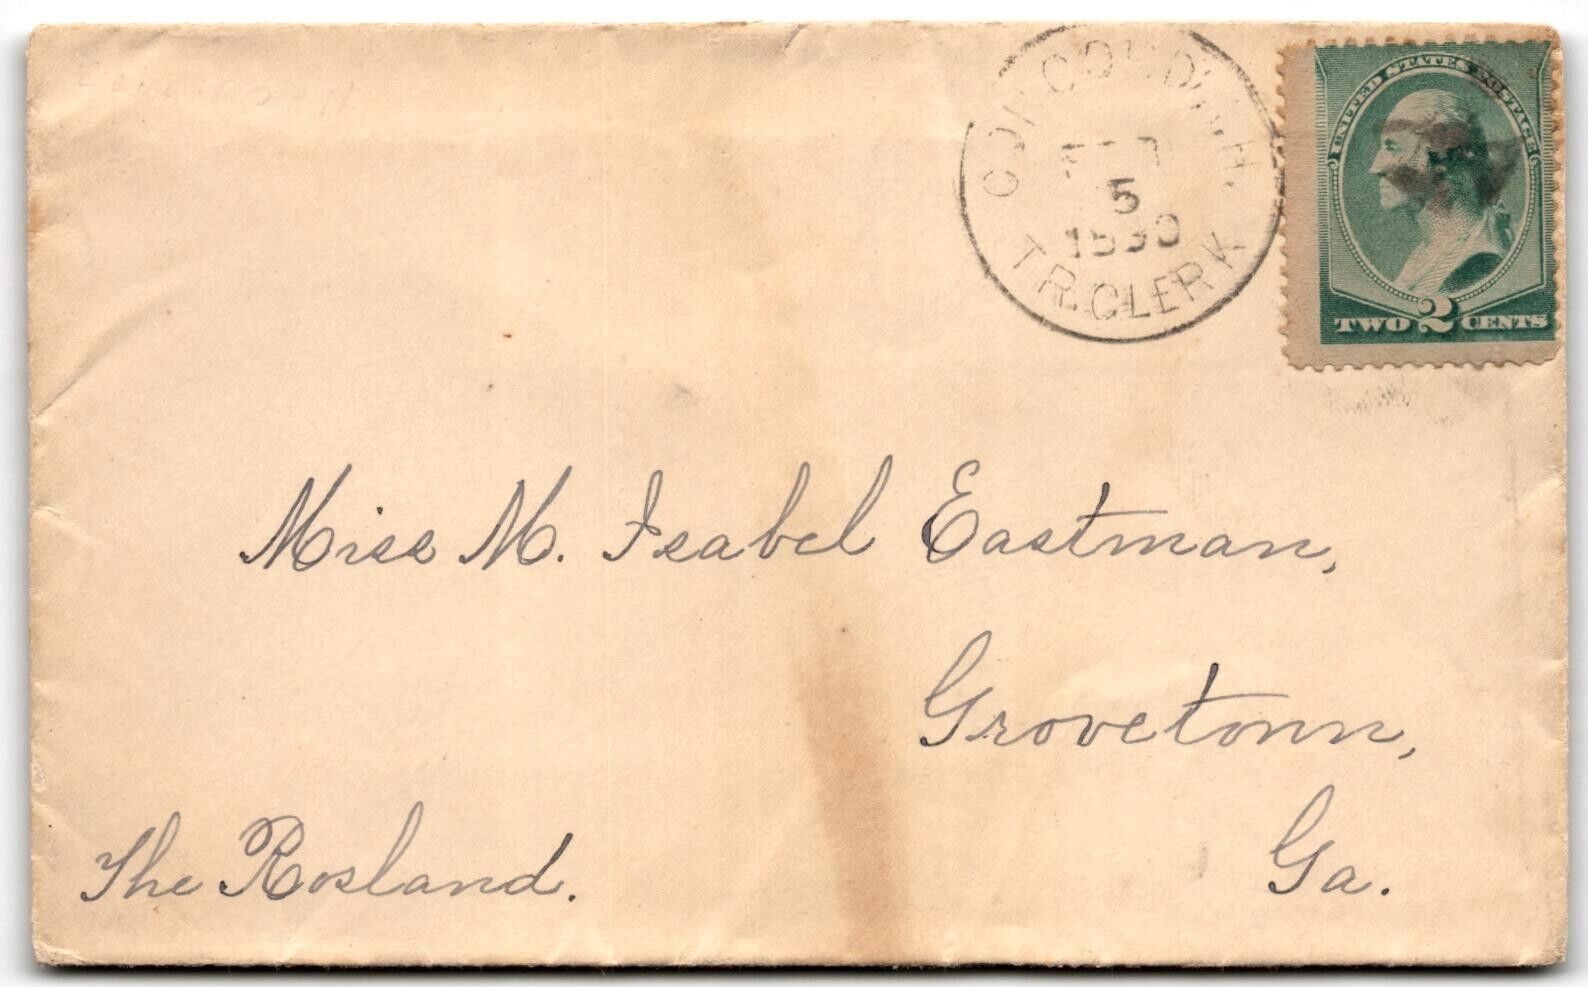 CONCORD, N.H.
FEB
5
1890
TR. CLERK
UNITED STATES POSTAGE
TWO 2 CENTS
Miss M. Isabel Eastman,
Grovetown,
Ga.
The Rosland.